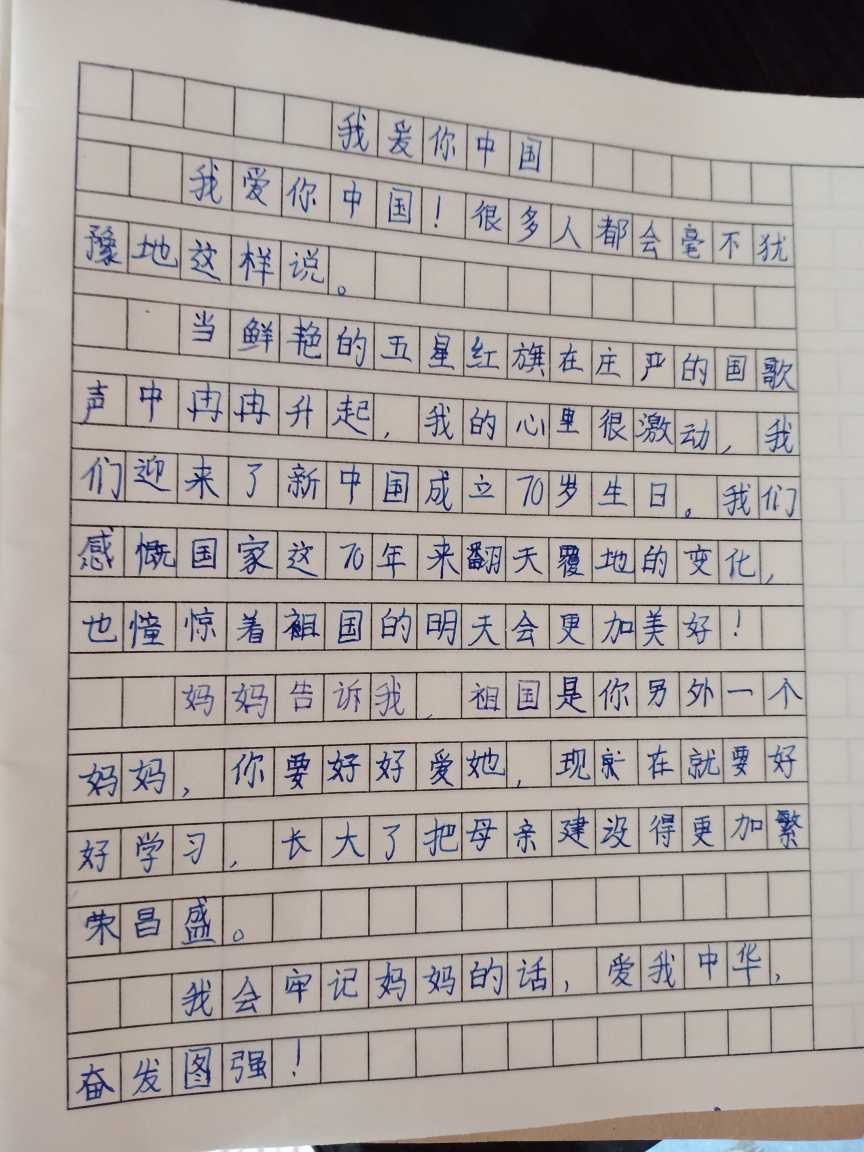 我爱你中国
我爱你中国！很多人都会毫不犹
豫地这样说。
当鲜艳的五星红旗在庄严的国歌
声中冉冉升起，我的心里很激动，我
们迎来了新中国成立70岁生日。我们
感慨国家这70年来翻天覆地的变化，
也憧惊着祖国的明天会更加美好！
妈妈告诉我，祖国是你另外一个
妈妈，你要好好爱她，现在就要好
好学习，长大了把母亲建设得更加繁
荣昌盛。
我会牢记妈妈的话，爱我中华，
奋发图强！